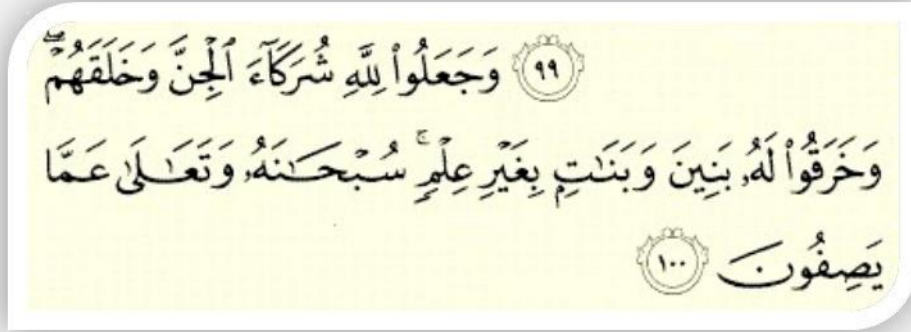 ۝٩٩ وَجَعَلُوا۟ لِلَّهِ شُرَكَآءَ ٱلْجِنَّ وَخَلَقَهُمْ ۖ
وَخَرَقُوا۟ لَهُۥ بَنِينَ وَبَنَـٰتٍۭ بِغَيْرِ عِلْمٍ ۚ سُبْحَـٰنَهُۥ وَتَعَـٰلَىٰ عَمَّا
يَصِفُونَ ۝١٠٠